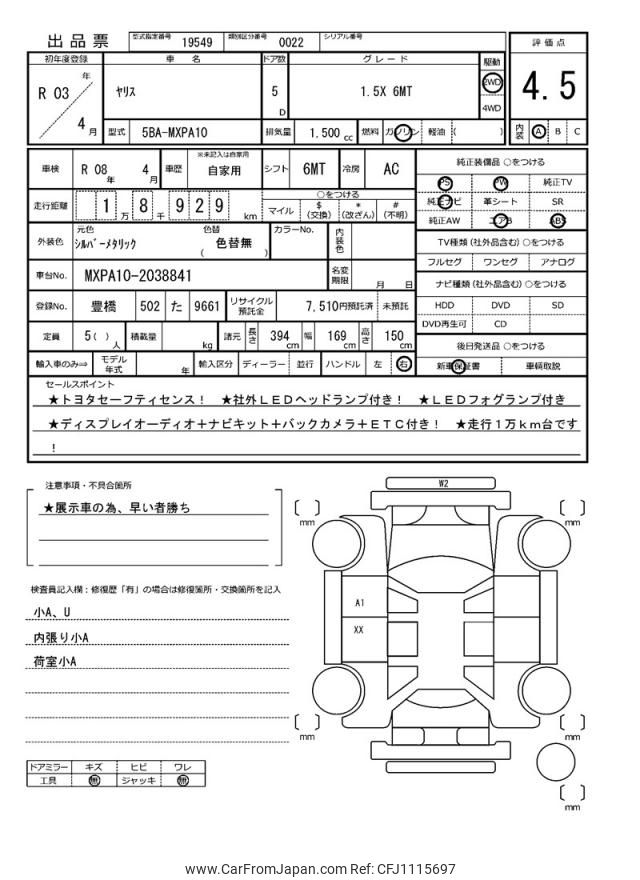 出品票
型式指定番号 19549 類別区分番号 0022 シリアル番号
評価点
4.5
内装 A B C
初年度登録 車名 ドア数 グレード 駆動
R 03 年 4 月
ヤリス 5 D 1.5X 6MT 2WD
4WD
型式 5BA-MXPA10 排気量 1,500 cc 燃料 ガソリン 軽油 ( )
車検 R 08 年 4 月 車歴 ※未記入は自家用 自家用 シフト 6MT 冷房 AC
走行距離 1 万 8 千 9 2 9 km
○をつける
マイル $ (交換) * (改ざん) # (不明)
外装色 元色 シルバーメタリック 色替 ( 色替無 ) カラーNo. 内装色
車台No. MXPA10-2038841 名変期限 月 日
登録No. 豊橋 502 た 9661 リサイクル預託金 7,510円預託済 未預託
定員 5( )人 積載量 kg 諸元 長さ 394 cm 幅 169 cm 高さ 150 cm
輸入車のみ⇒ モデル年式 年 輸入区分 ディーラー 並行 ハンドル 左 右
純正装備品 ○をつける
PS PW 純正TV
純正ナビ 革シート SR
純正AW エアB ABS
TV種類(社外品含む) ○をつける
フルセグ ワンセグ アナログ
ナビ種類(社外品含む) ○をつける
HDD DVD SD
DVD再生可 CD
後日発送品 ○をつける
新車保証書 車輌取説
セールスポイント
★トヨタセーフティセンス! ★社外LEDヘッドランプ付き! ★LEDフォグランプ付き
★ディスプレイオーディオ+ナビキット+バックカメラ+ETC付き! ★走行1万km台です
!
注意事項・不具合箇所
★展示車の為、早い者勝ち
検査員記入欄:修復歴「有」の場合は修復箇所・交換箇所を記入
小A、U
内張り小A
荷室小A
ドアミラー キズ ヒビ ワレ
工具 無 ジャッキ 無
W2
A1
XX
mm
mm
mm
mm
mm
www.CarFromJapan.com Ref: CFJ1115697